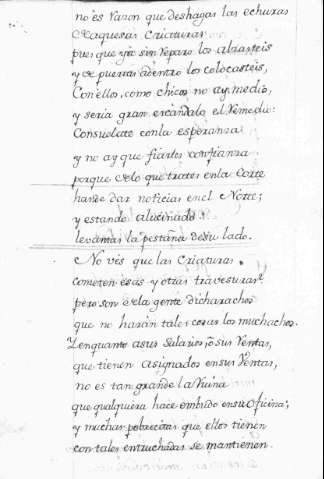 no es razon que deshagas las echuras
de aquesas Criaturas
pues que ya sin reparo los abrasteis
y de puertas adentro los colocasteis,
Con ellos, como chicos no ay medio,
y seria gran escandalo el remedio:
Consuelate con la esperanza
y no ay que fiartes confianza
porque de lo que trates en la Corte
han de dar noticias en el Norte;
y estando alucinado
levantas la pestaña de su lado.
No ves que las Criaturas
cometen esas y otras travesuras
pero son de la gente dicharachos
que no harán tales cosas los muchachos.
Y en quanto a sus Salarios, ò sus Rentas,
que tienen asignados en sus Ventas,
no es tan grande la Ruina
que qualquiera hace embudo en su Oficina;
y muchas pobrecitas que ellos tienen
con tales entruchadas se mantienen.